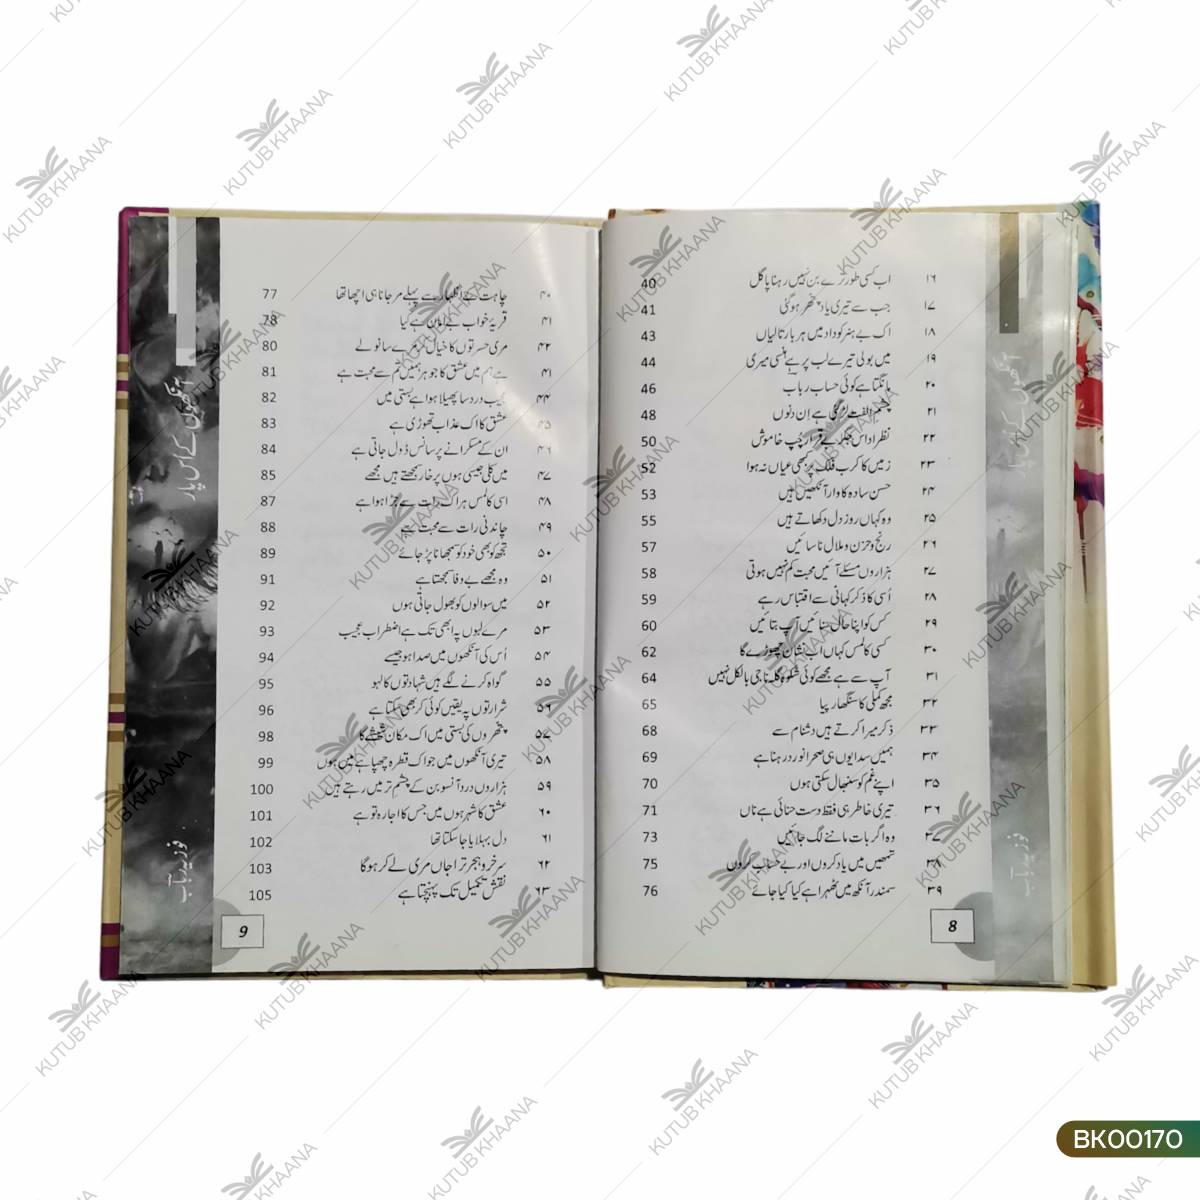 ۱۶ اب کسی طور ترے بن نہیں رہنا پاگل 40
۱۷ جب سے تیری یاد پتھر ہو گئی 41
۱۸ اک بے ہنر کو داد میں ہر بار تالیاں 43
۱۹ میں بولی تیرے لب پر ہے ہنسی میری 44
۲۰ مانگتا ہے کوئی حساب رباب 46
۲۱ چشم الفت لڑ گئی ہے اِن دنوں 48
۲۲ نظر اداس جگر بے قرار چپ خاموش 50
۲۳ زمیں کا کرب فلک پر کبھی عیاں نہ ہوا 52
۲۴ حسن سادہ کا وار آنکھیں ہیں 53
۲۵ وہ کہاں روز دل دکھاتے ہیں 55
۲۶ رنج و حزن و ملال نا سائیں 57
۲۷ ہزاروں مسئلے آئیں محبت کم نہیں ہوتی 58
۲۸ اُسی کا ذکر کہانی سے اقتباس رہے 59
۲۹ کس کو اپنا حال سنائیں آپ بتائیں 60
۳۰ کسی کا لمس کہاں اب نشان چھوڑے گا 62
۳۱ آپ سے ہے مجھے کوئی شکوہ گلہ نا جی بالکل نہیں 64
۳۲ مجھ کملی کا سنگھار پیا 65
۳۳ ذکر میرا کرتے ہیں دشنام سے 68
۳۴ ہمیں سدا یوں ہی صحرا نورد رہنا ہے 69
۳۵ اپنے غم کو سنبھال سکتی ہوں 70
۳۶ تیری خاطر ہی فقط دست حنائی ہے ناں 71
۳۷ وہ اگر بات ماننے لگ جائیں 73
۳۸ تمھیں میں یاد کروں اور بے حساب کروں 75
۳۹ سمندر آنکھ میں ٹھہرا ہے کیا کیا جائے 76
8
آنکھوں کے اُس پار
فوزیہ رباب
۴۰ چاہت کے اظہار سے پہلے مر جانا ہی اچھا تھا 77
۴۱ قریۂ خواب بے امان ہے کیا 78
۴۲ مری حسرتوں کا خیال کر مرے سانولے 80
۴۱ ہے ہم میں عشق کا جوہر ہمیں تم سے محبت ہے 81
۴۴ عجیب درد سا پھیلا ہوا ہے بستی میں 82
۴۵ عشق کا اک عذاب تھوڑی ہے 83
۴۶ ان کے مسکرانے پر سانس ڈول جاتی ہے 84
۴۷ میں کلی جیسی ہوں پر خار سمجھتے ہیں مجھے 85
۴۸ اسی کا لمس ہر اک رات سے جڑا ہوا ہے 87
۴۹ چاندنی رات سے محبت ہے 88
۵۰ تجھ کو بھی خود کو سمجھانا پڑ جائے 89
۵۱ وہ مجھے بے وفا سمجھتا ہے 91
۵۲ میں سوالوں کو بھول جاتی ہوں 92
۵۳ مرے لبوں پہ ابھی تک ہے اضطراب عجیب 93
۵۴ اُس کی آنکھوں میں صدا ہو جیسے 94
۵۵ گواہ کرنے لگے ہیں شہادتوں کا لہو 95
۵۶ شرارتوں پہ یقیں کوئی کر بھی سکتا ہے 96
۵۷ پتھروں کی بستی میں اک مکان شیشے کا 98
۵۸ تیری آنکھوں میں جو اک قطرہ چھپا ہے میں ہوں 99
۵۹ ہزاروں درد آنسو بن کے چشم تر میں رہتے ہیں 100
۶۰ عشق کا شہر ہوں میں جس کا اجارہ تو ہے 101
۶۱ دل بہلایا جا سکتا تھا 102
۶۲ سرخرو ہجر ترا جاں مری لے کر ہوگا 103
۶۳ نقش تکمیل تک پہنچتا ہے 105
9
آنکھوں کے اُس پار
فوزیہ رباب
KUTUB KHAANA
BK00170